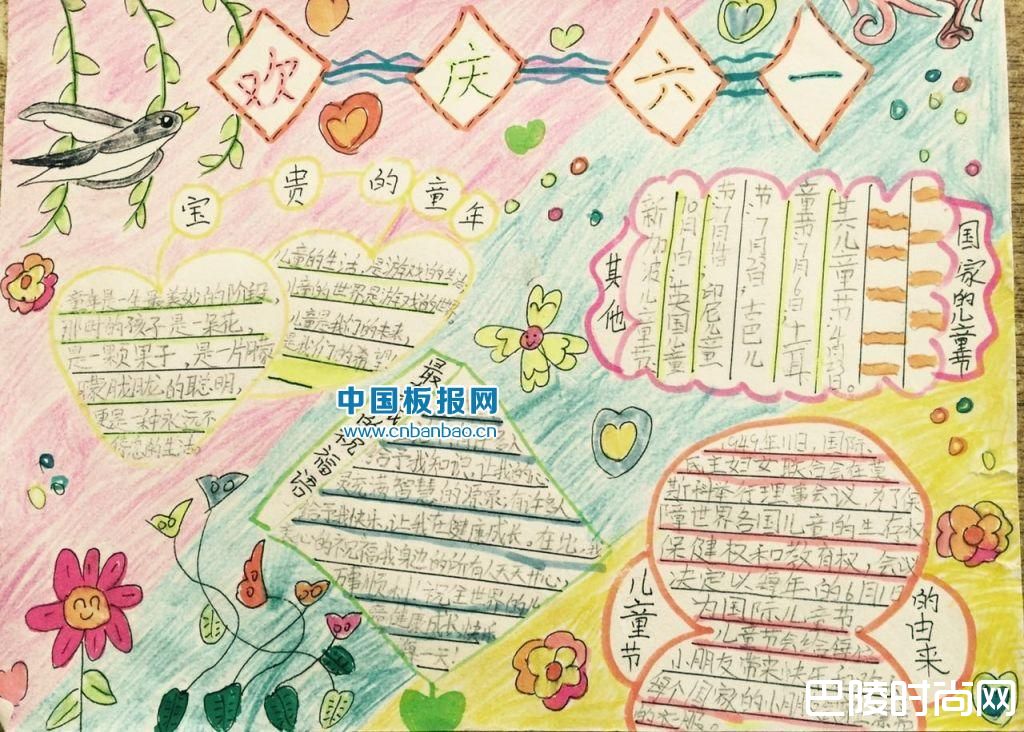 欢庆六一
宝贵的童年
童年是一生最美妙的阶段，
那时的孩子是一朵花，
是一颗果子，是一片朦
朦胧胧的聪明，
更是一种永远不
停息的生活。
儿童的生活是游戏的生活，
儿童的世界是游戏的世界。
儿童是我们的未来，
是我们的希望！
其他
国家的儿童节
新加波儿童节
10月1日，英国儿童
节7月14，印尼儿童
节7月23日，古巴儿
童节7月6日，土耳
其儿童节4月23日。
最
祝福语
中国板报网
www.cnbanbao.cn
给予我知识，让我的
智慧的源泉，有许多人
给予我快乐，让我在健康成长。在此，
心的祝福我身边的所有人天天开心，
万事顺利！祝全世界的儿
童健康成长快乐
每一天！
儿童节
的由来
1949年11月，国际
民主妇女联合会在莫
斯科举行理事会议，为了保
障世界各国儿童的生存权
保健权和教育权，会议
决定以每年的6月1日
为国际儿童节。
儿童节会给每位
小朋友带来快乐
每个国家的小朋
巴陵时尚网